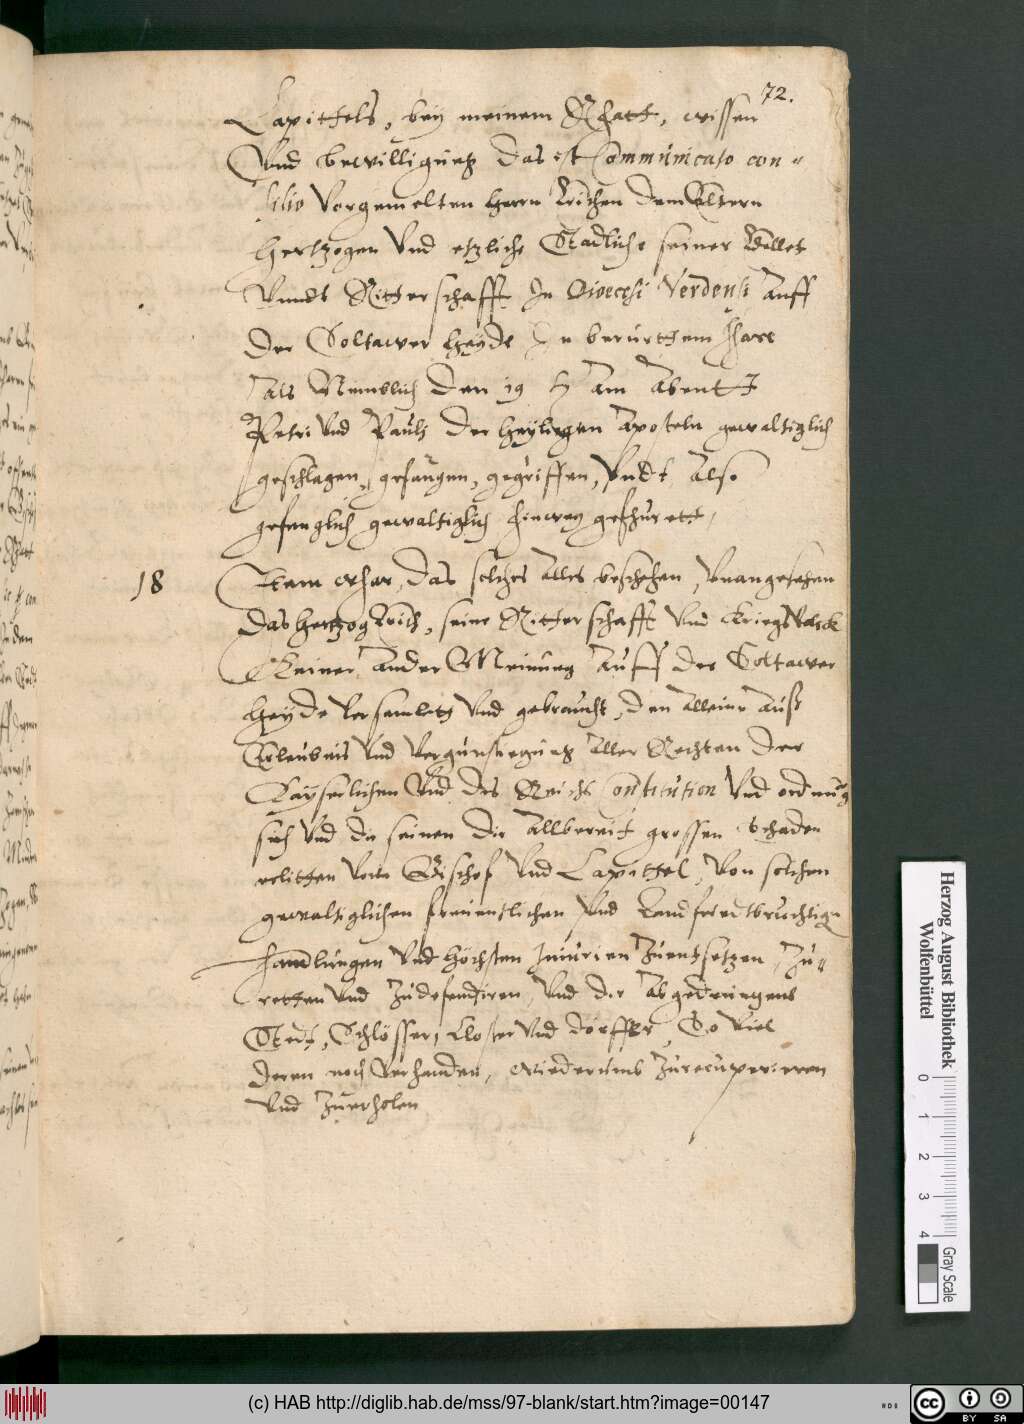 72.
Capittels, bey meinem Rhatt, wissen
Vnd bewilligung das est Communicato con-
silio Vorgemelten herrn Erichen dem Eltern
Hertzogen Vnd etzliche Stadliche seiner
Vnndt Ritterschafft In Dioecesi Verdensi Auff
der Soltawer heyde In berurttem Jhare
Als Nemblich den 19 Am Abentt
Petri Vnd Pauli der heyligen Aposteln gewaltiglich
geschlagen, gefangen, gegriffen, Vndt Also
gefenglich gewaltiglich hinweg gefhurett,
18 Item whar, das solches Alles beschehen, Vnangesehen
das hertzog Erich, seine Ritterschafft Vnd Kriegs Volck
Keiner Ander Meinung Auff der Soltawer
heyde Versamlett Vnd gebraucht, den Alleine Auß
Erleubnis Vnd Vergunstigung Aller Rechten der
Kayserlichen Vnd des Reichs Contitution Vnd ordnung
sich Vnd die seinen die Allbereit grossen schaden
erlitten Vom Bischof Vnd Capittel, Von solchen
gewaltiglichen freuentlichen Vnd Landfriedtbruchtigen
handlungen Vnd höchsten Iniurien Zuentsetzen, Zu-
retten Vnd Zudefendiren, Vnd die Abgedrungens
Stedt, Schlösser, Kloster Vnd dörffer, So Viel
deren noch Verhanden, wiederumb Zurecuperieren
Vnd Zuerholen
Herzog August Bibliothek
Wolfenbüttel
0 1 2 3 4
Gray Scale
(c) HAB http://diglib.hab.de/mss/97-blank/start.htm?image=00147
cc BY SA